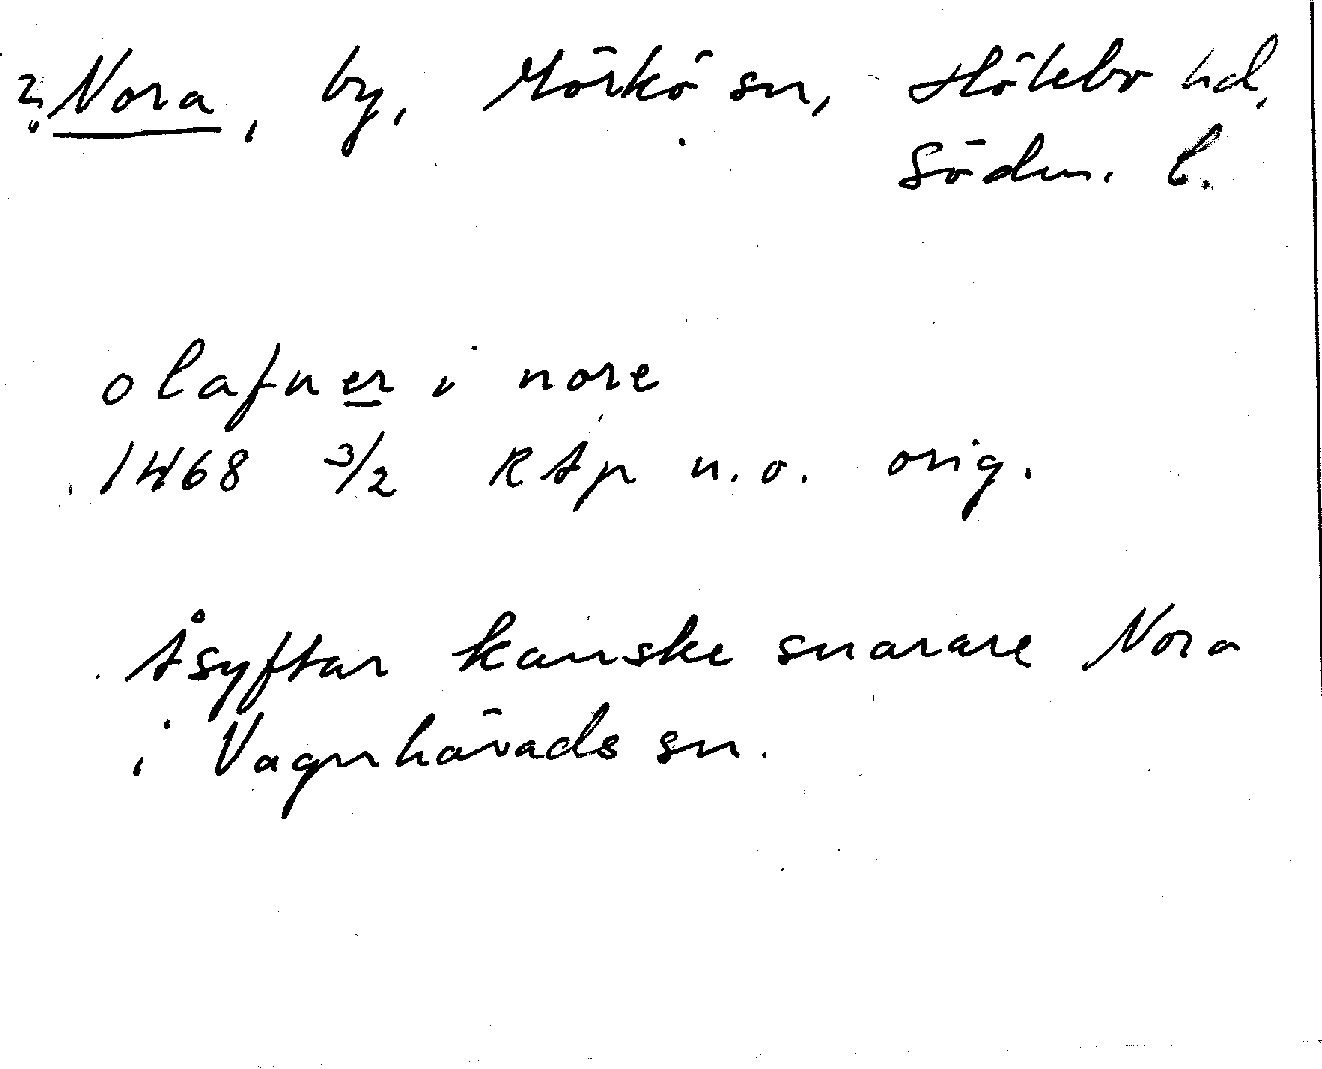 ? Nora, by, Mörkö sn, Hölebo hd,
Söderm. l.
olafuer i nore
1468 3/2 RAp n.o. orig.
Åsyftar kanske snarare Nora
i Vagnhärads sn.